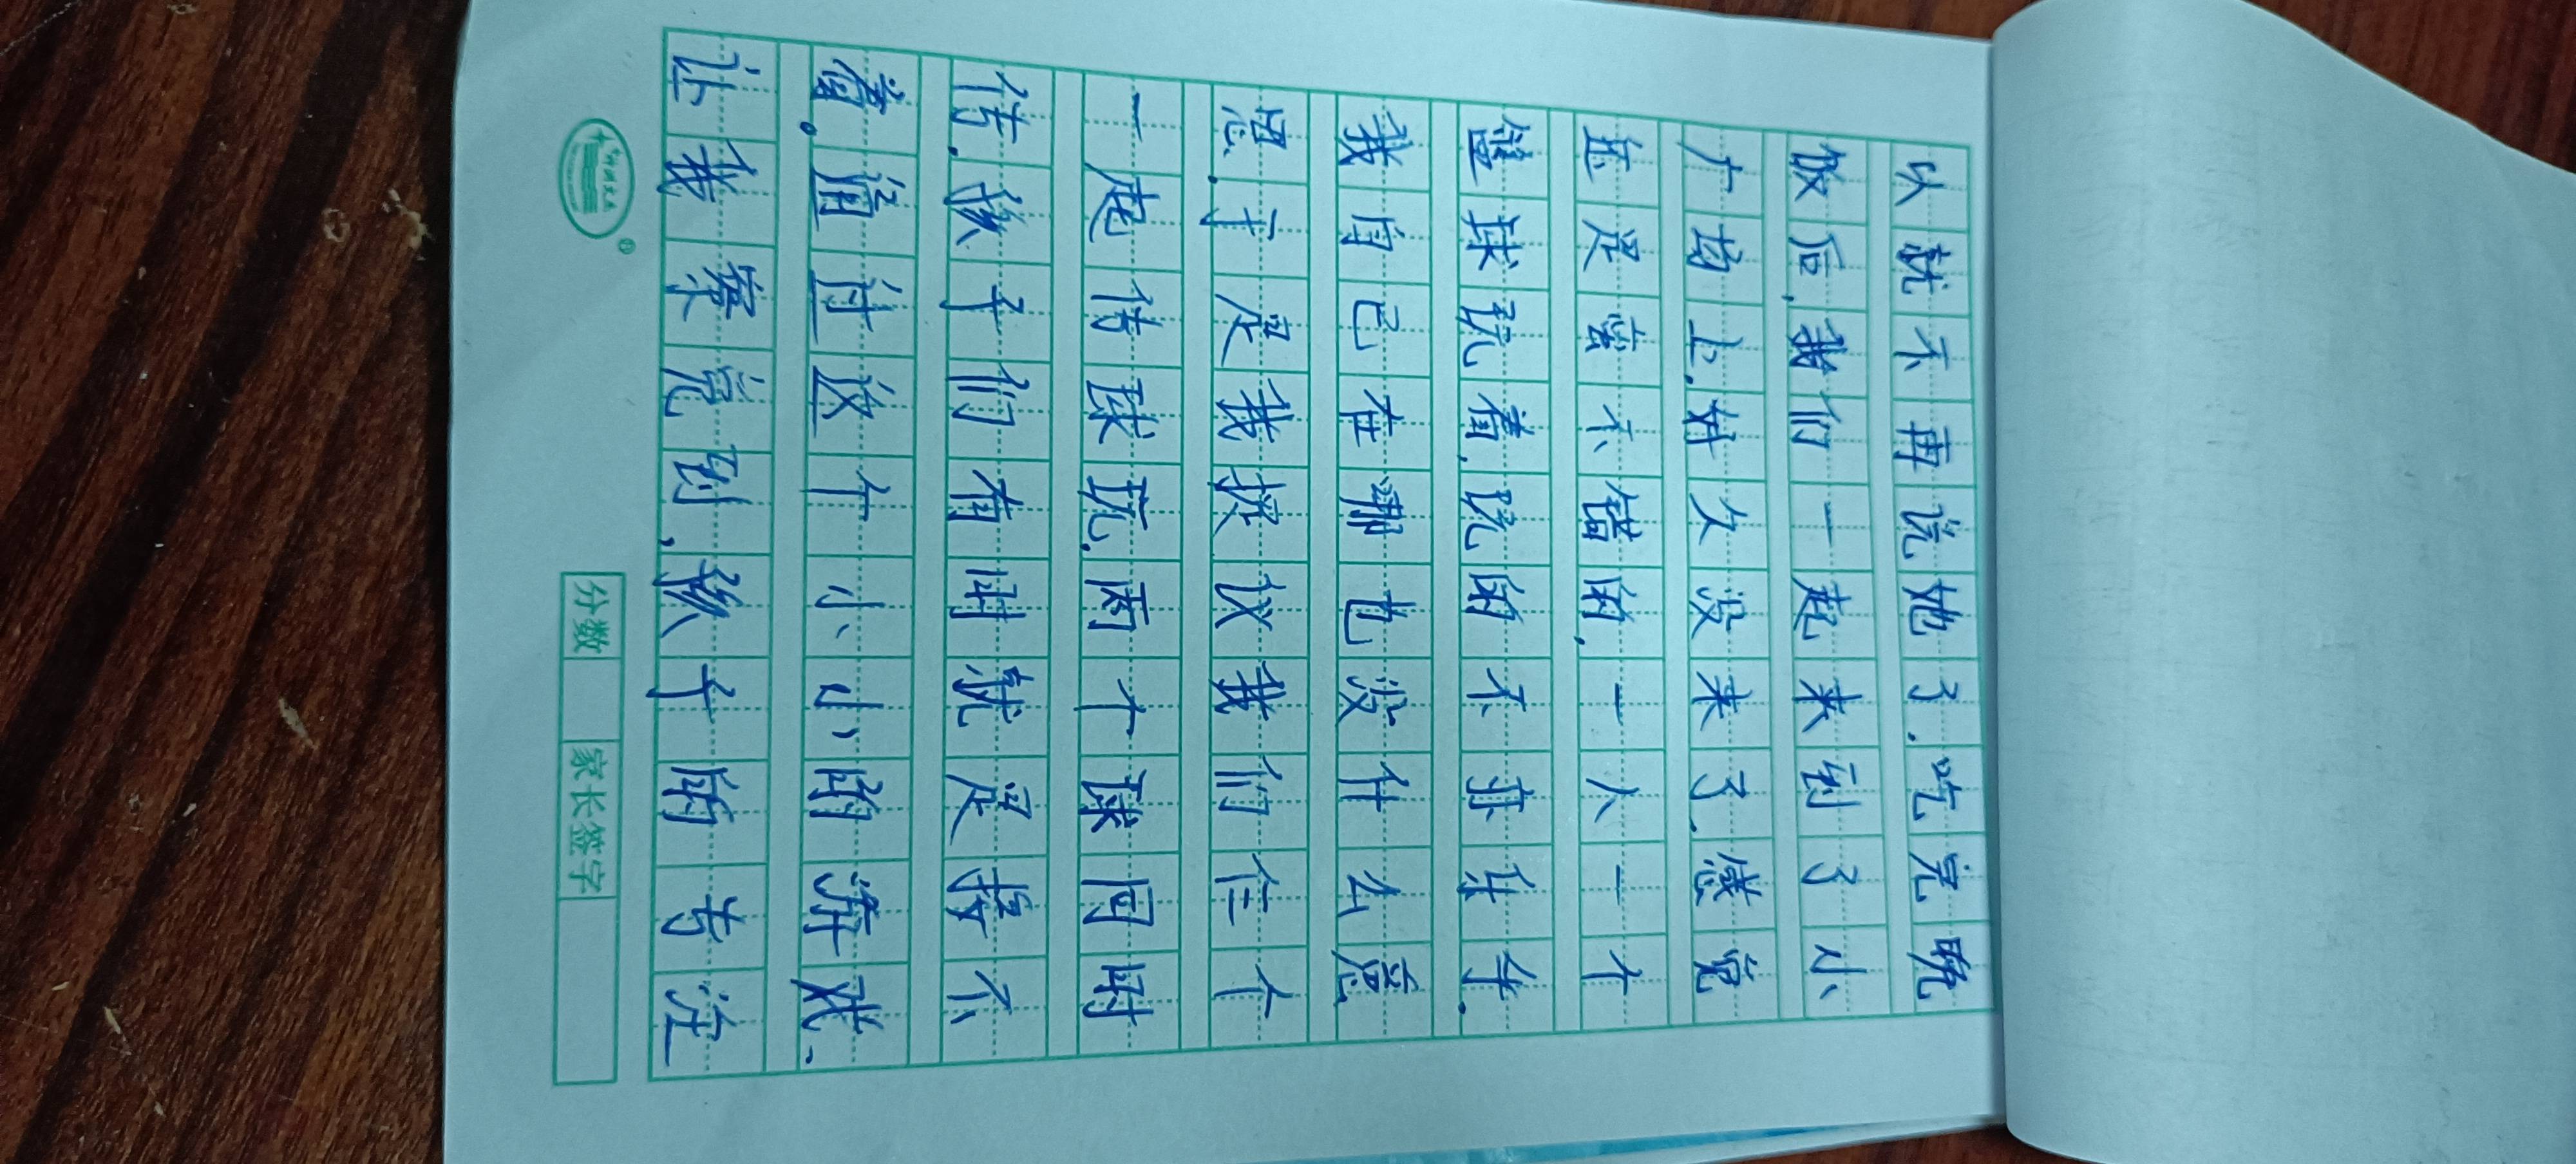 以就不再说她了.吃完晚
饭后,我们一起来到了小
广场上.好久没来了.感觉
还是蛮不错的.一人一个
篮球玩着,玩的不亦乐乎.
我自己在哪也没什么意
思.于是我提议我们仨个
一起传球玩.两个球同时
传.孩子们有时就是接不
着.通过这个小小的游戏、
让我察觉到,孩子的专注
分数 家长签字